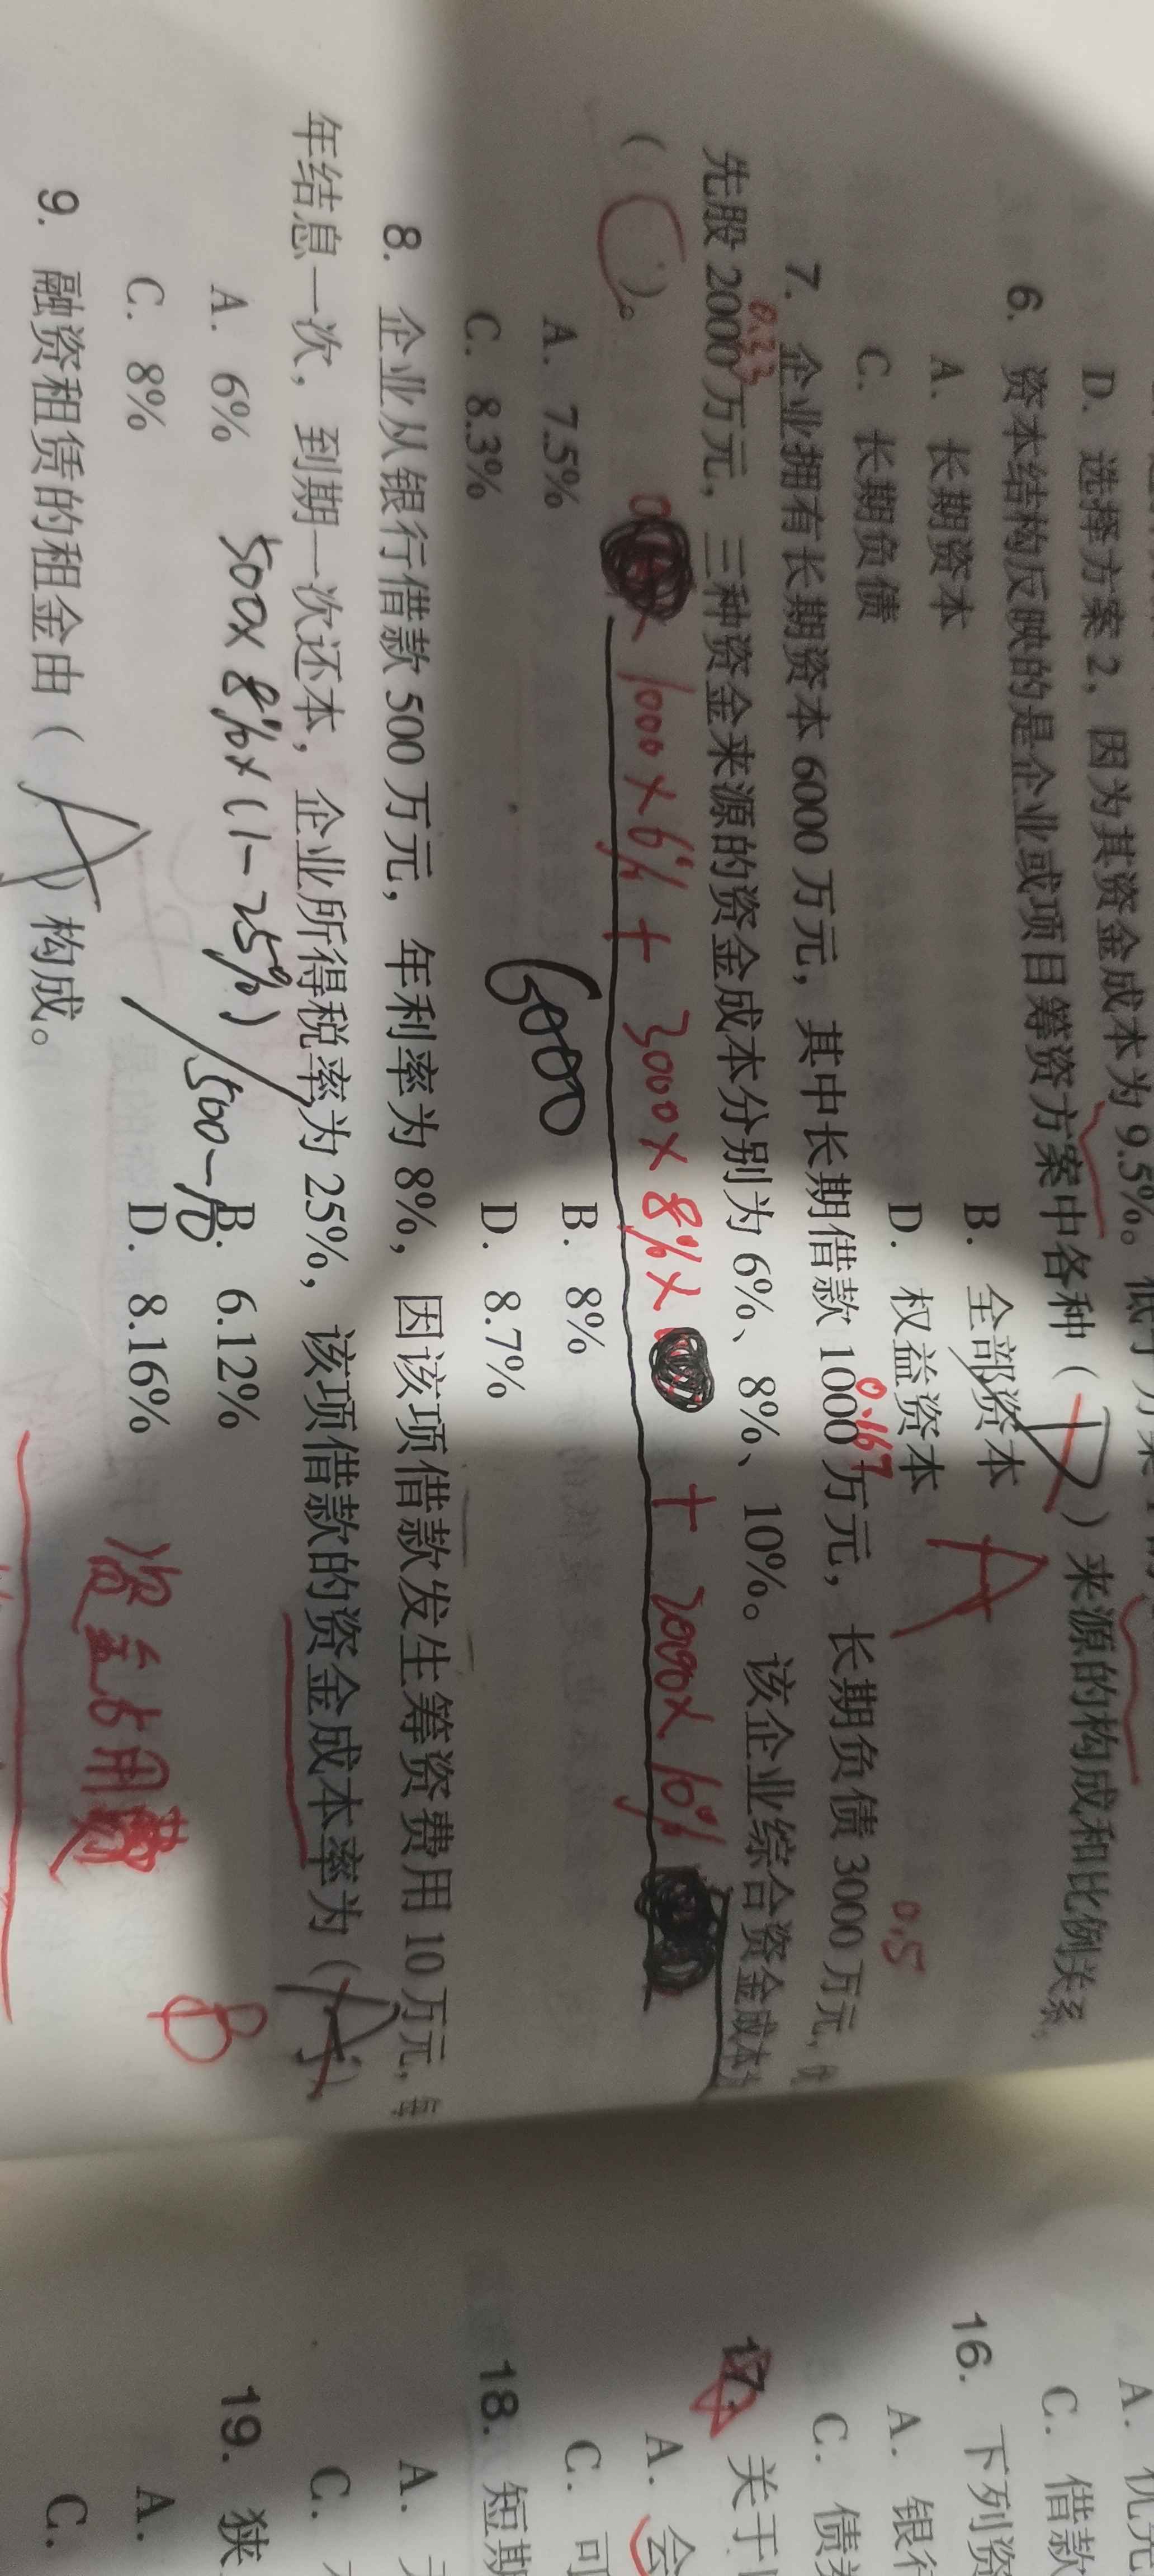 D. 选择方案 2，因为其资金成本为 9.5%。低于
6. 资本结构反映的是企业或项目筹资方案中各种（D）来源的构成和比例关系
A. 长期资本 B. 全部资本
A
C. 长期负债 D. 权益资本
0.167 0.5
7. 企业拥有长期资本 6000 万元，其中长期借款 1000 万元，长期负债 3000 万元，
0.33
先股 2000 万元，三种资金来源的资金成本分别为 6%、8%、10%。该企业综合资金成本
（C）。
1000×6% + 3000×8%× + 2000×10%
6000
A. 7.5% B. 8%
C. 8.3% D. 8.7%
8. 企业从银行借款 500 万元，年利率为 8%，因该项借款发生筹资费用 10 万元，每
年结息一次，到期一次还本，企业所得税率为 25%，该项借款的资金成本率为（A）
A. 6% B. 6.12%
B
500×8%×(1-25%)/500-10
C. 8% D. 8.16%
资金占用费
9. 融资租赁的租金由（A）构成。
A.
C. 借款
16. 下列资
A. 银行
C. 债券
17. 关于
A. 会
C. 可
18. 短期
A.
C.
19. 狭
A.
C.